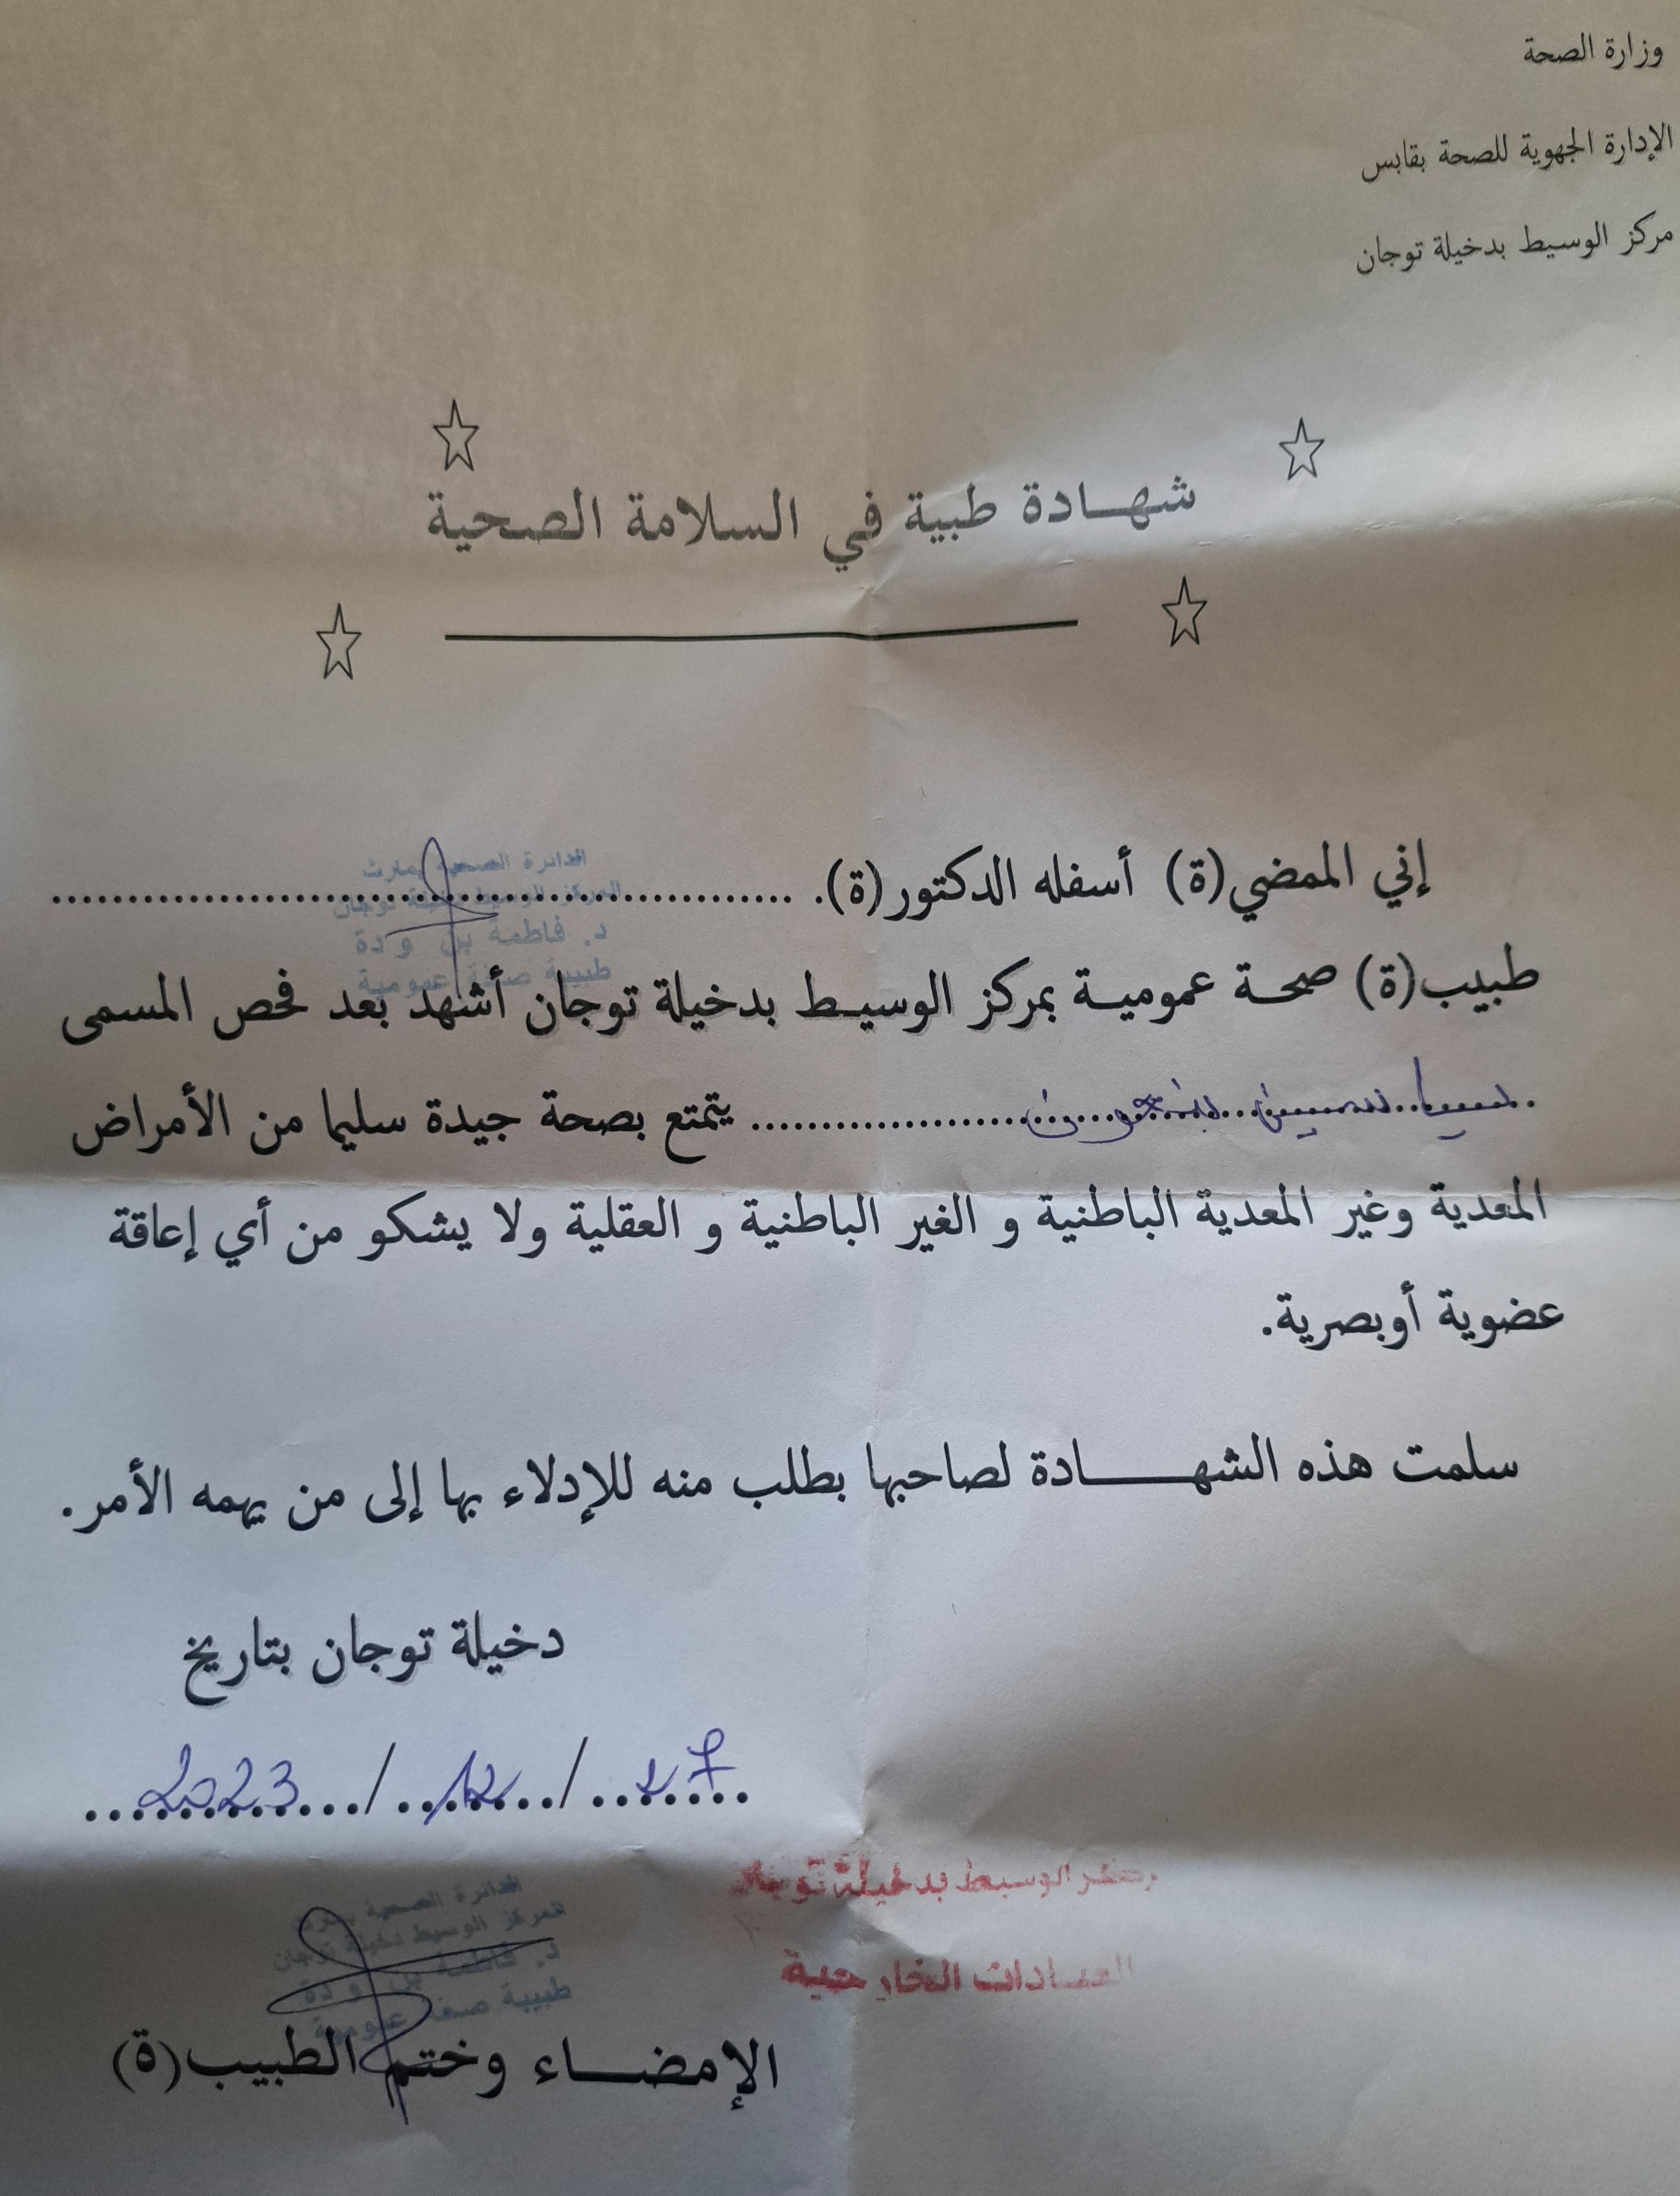 وزارة الصحة
الإدارة الجهوية للصحة بقابس
مركز الوسيط بدخيلة توجان
شهادة طبية في السلامة الصحية
إني الممضي(ة) أسفله الدكتور(ة). ........................................
الدائرة الصحية بمارث
د. فاطمة بن
طبيبة صحة عمومية
طبيب(ة) صحة عمومية بمركز الوسيط بدخيلة توجان أشهد بعد فحص المسمى
.................... يتمتع بصحة جيدة سليما من الأمراض
المعدية وغير المعدية الباطنية و الغير الباطنية و العقلية ولا يشكو من أي إعاقة
عضوية أوبصرية.
سلمت هذه الشهادة لصاحبها بطلب منه للإدلاء بها إلى من يهمه الأمر.
دخيلة توجان بتاريخ
27/12/2023
مركز الوسيط بدخيلة توجان
العيادات الخارجية
الدائرة الصحية بمارث
المركز الوسيط دخيلة توجان
د. فاطمة بن
طبيبة صحة عمومية
الإمضاء وختم الطبيب(ة)